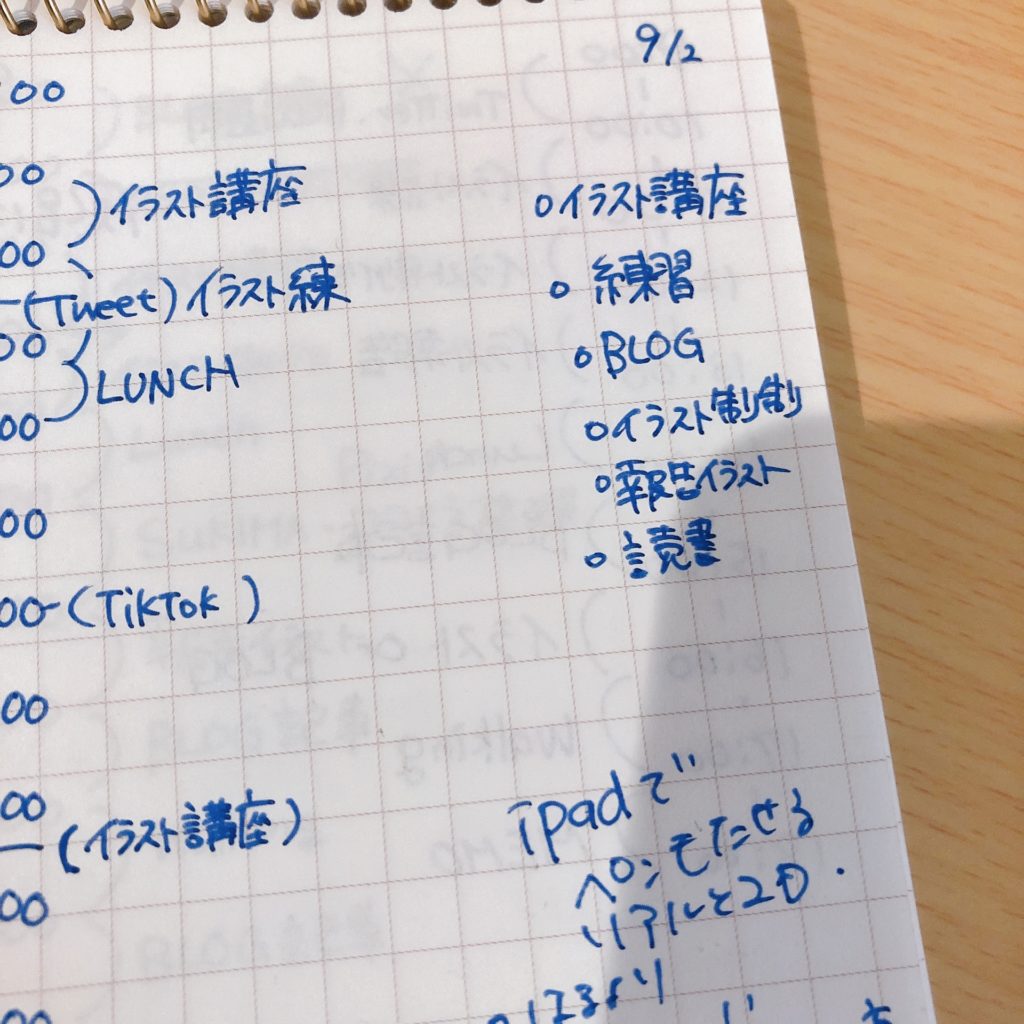 9/2
:00
00
イラスト講座
00
(Tweet) イラスト練
00
LUNCH
00
00
00-(TikTok)
00
00
(イラスト講座)
00
00
○イラスト講座
○練習
○BLOG
○イラスト制制
○報告イラスト
○読書
ipadで
ペン モたせる
リアルと2